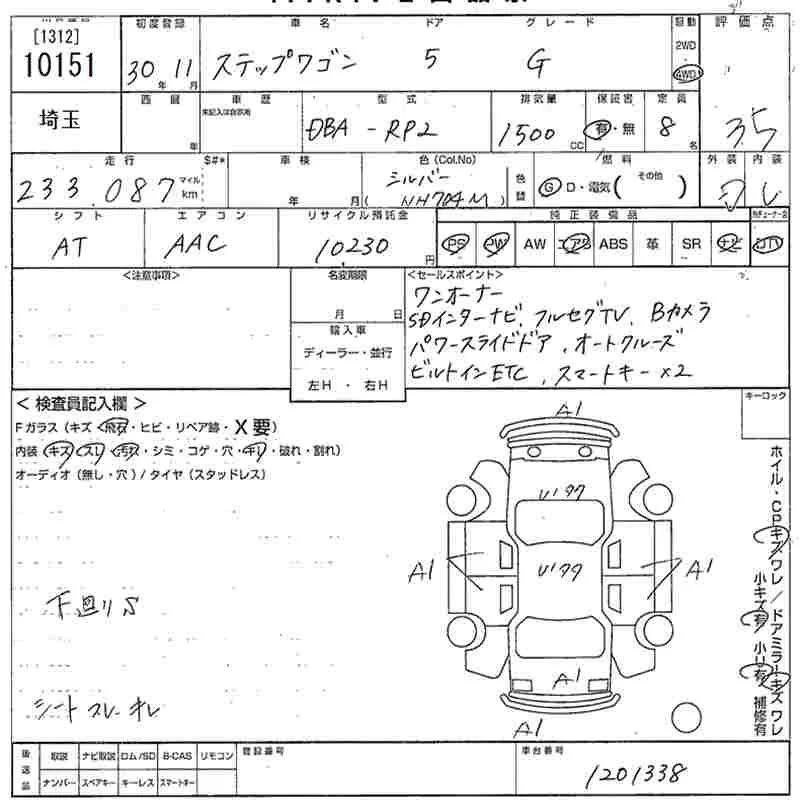 [1312] 初度登録 車名 ドア グレード 駆動 評価点
10151 30年 11月 ステップワゴン 5 G 2WD 4WD
埼玉 西暦 年 車歴 未記入は自家用 型式 排気量 保証書 定員
DBA - RP2 1500CC 有・無 8名 3.5
走行 S#* 車検 色(Col.No) 燃料 その他 外装 内装
233,087 マイル km 年 月 シルバー ( NH704M ) 色替 G D・電気( )
シフト エアコン リサイクル預託金 純正装備品
AT AAC 10230円 PS PW AW エアB ABS 革 SR ナビ TV
<注意事項> 名変期限 <セールスポイント>
月 日
輸入車
ディーラー・並行
左H ・ 右H
ワンオーナー
SDインターナビ、フルセグTV、Bカメラ
パワースライドドア、オートクルーズ
ビルトインETC、スマートキー×2
キーロック
< 検査員記入欄 >
Fガラス(キズ・飛石・ヒビ・リペア跡・X要)
内装(キズ・スレ・汚
・シミ・コゲ・穴・キレ・破れ・割れ)
オーディオ(無し・穴)/タイヤ(スタッドレス)
下廻りS
シート スレ キレ
A1
A1
A1
A1
A1
ホイル・CPキズワレ/ドアミラーキズワレ
小キズ有 小U有 補修有
後送品 取説 ナビ取説 ロム/SD B-CAS リモコン 登録番号 車台番号
ナンバー スペアキー キーレス スマートキー 1201338